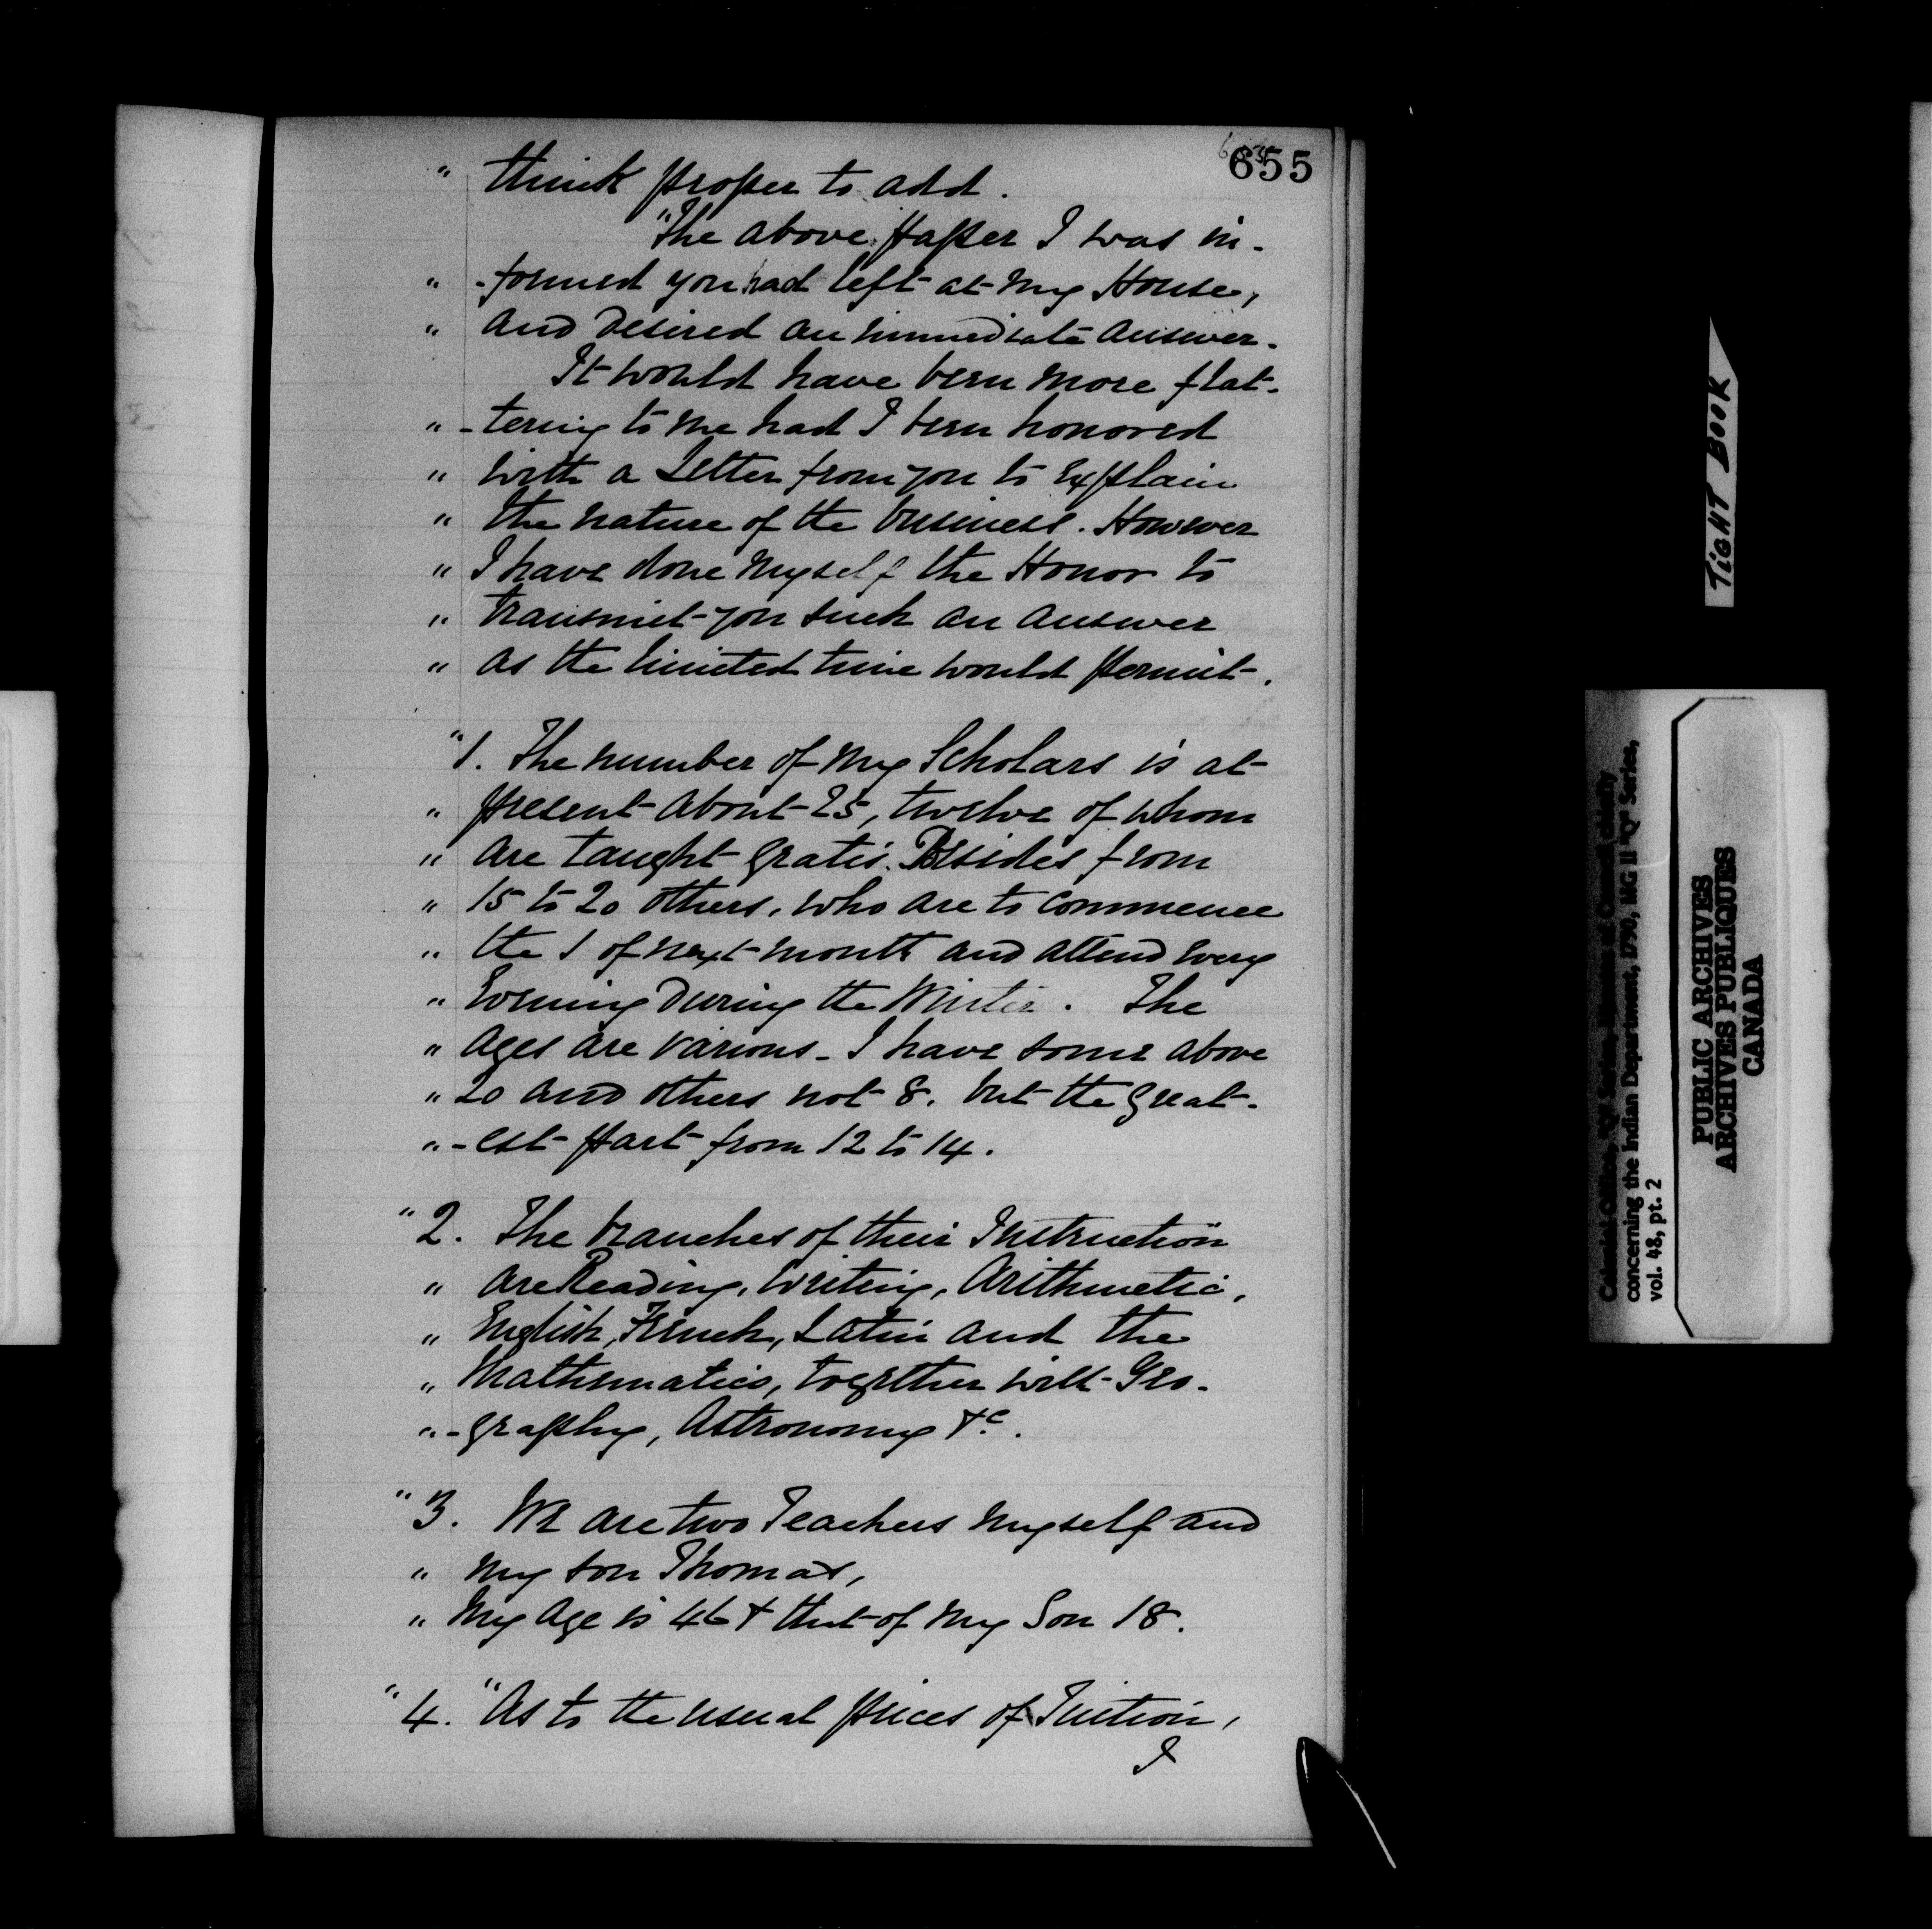 655
" think proper to add.
"The above paper I was in-
" -formed you had left at my House,
" and desired an immediate answer.
It would have been more flat-
" -tering to me had I been honored
" with a Letter from you to explain
" the nature of the business. However
" I have done myself the Honor to
" transmit you such an answer
" as the limited time would permit.
"1. The number of my Scholars is at
" present about 25, twelve of whom
" are taught gratis. Besides from
" 15 to 20 others, who are to commence
" the 1 of next month and attend every
" Evening during the Winter. The
" ages are various - I have some above
" 20 and others not 8. but the great-
" -est part from 12 to 14.
"2. The branches of their Instruction
" are Reading, Writing, Arithmetic,
" English, French, Latin and the
" Mathematics, together with Geo-
" -graphy, Astronomy &c.
"3. We are two Teachers myself and
" my son Thomas,
" My age is 46 & that of my Son 18.
"4. "As to the usual prices of Tuition,
I
TIGHT BOOK
Colonial Office, "Q" Series,
concerning the Indian Department, 1790, MG 11 "Q" Series,
vol. 48, pt. 2
PUBLIC ARCHIVES
ARCHIVES PUBLIQUES
CANADA